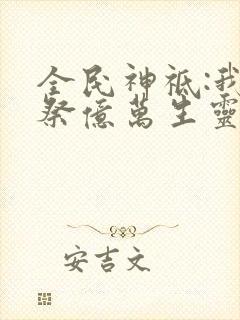 全民神祇:我
祭億萬生靈
安吉文